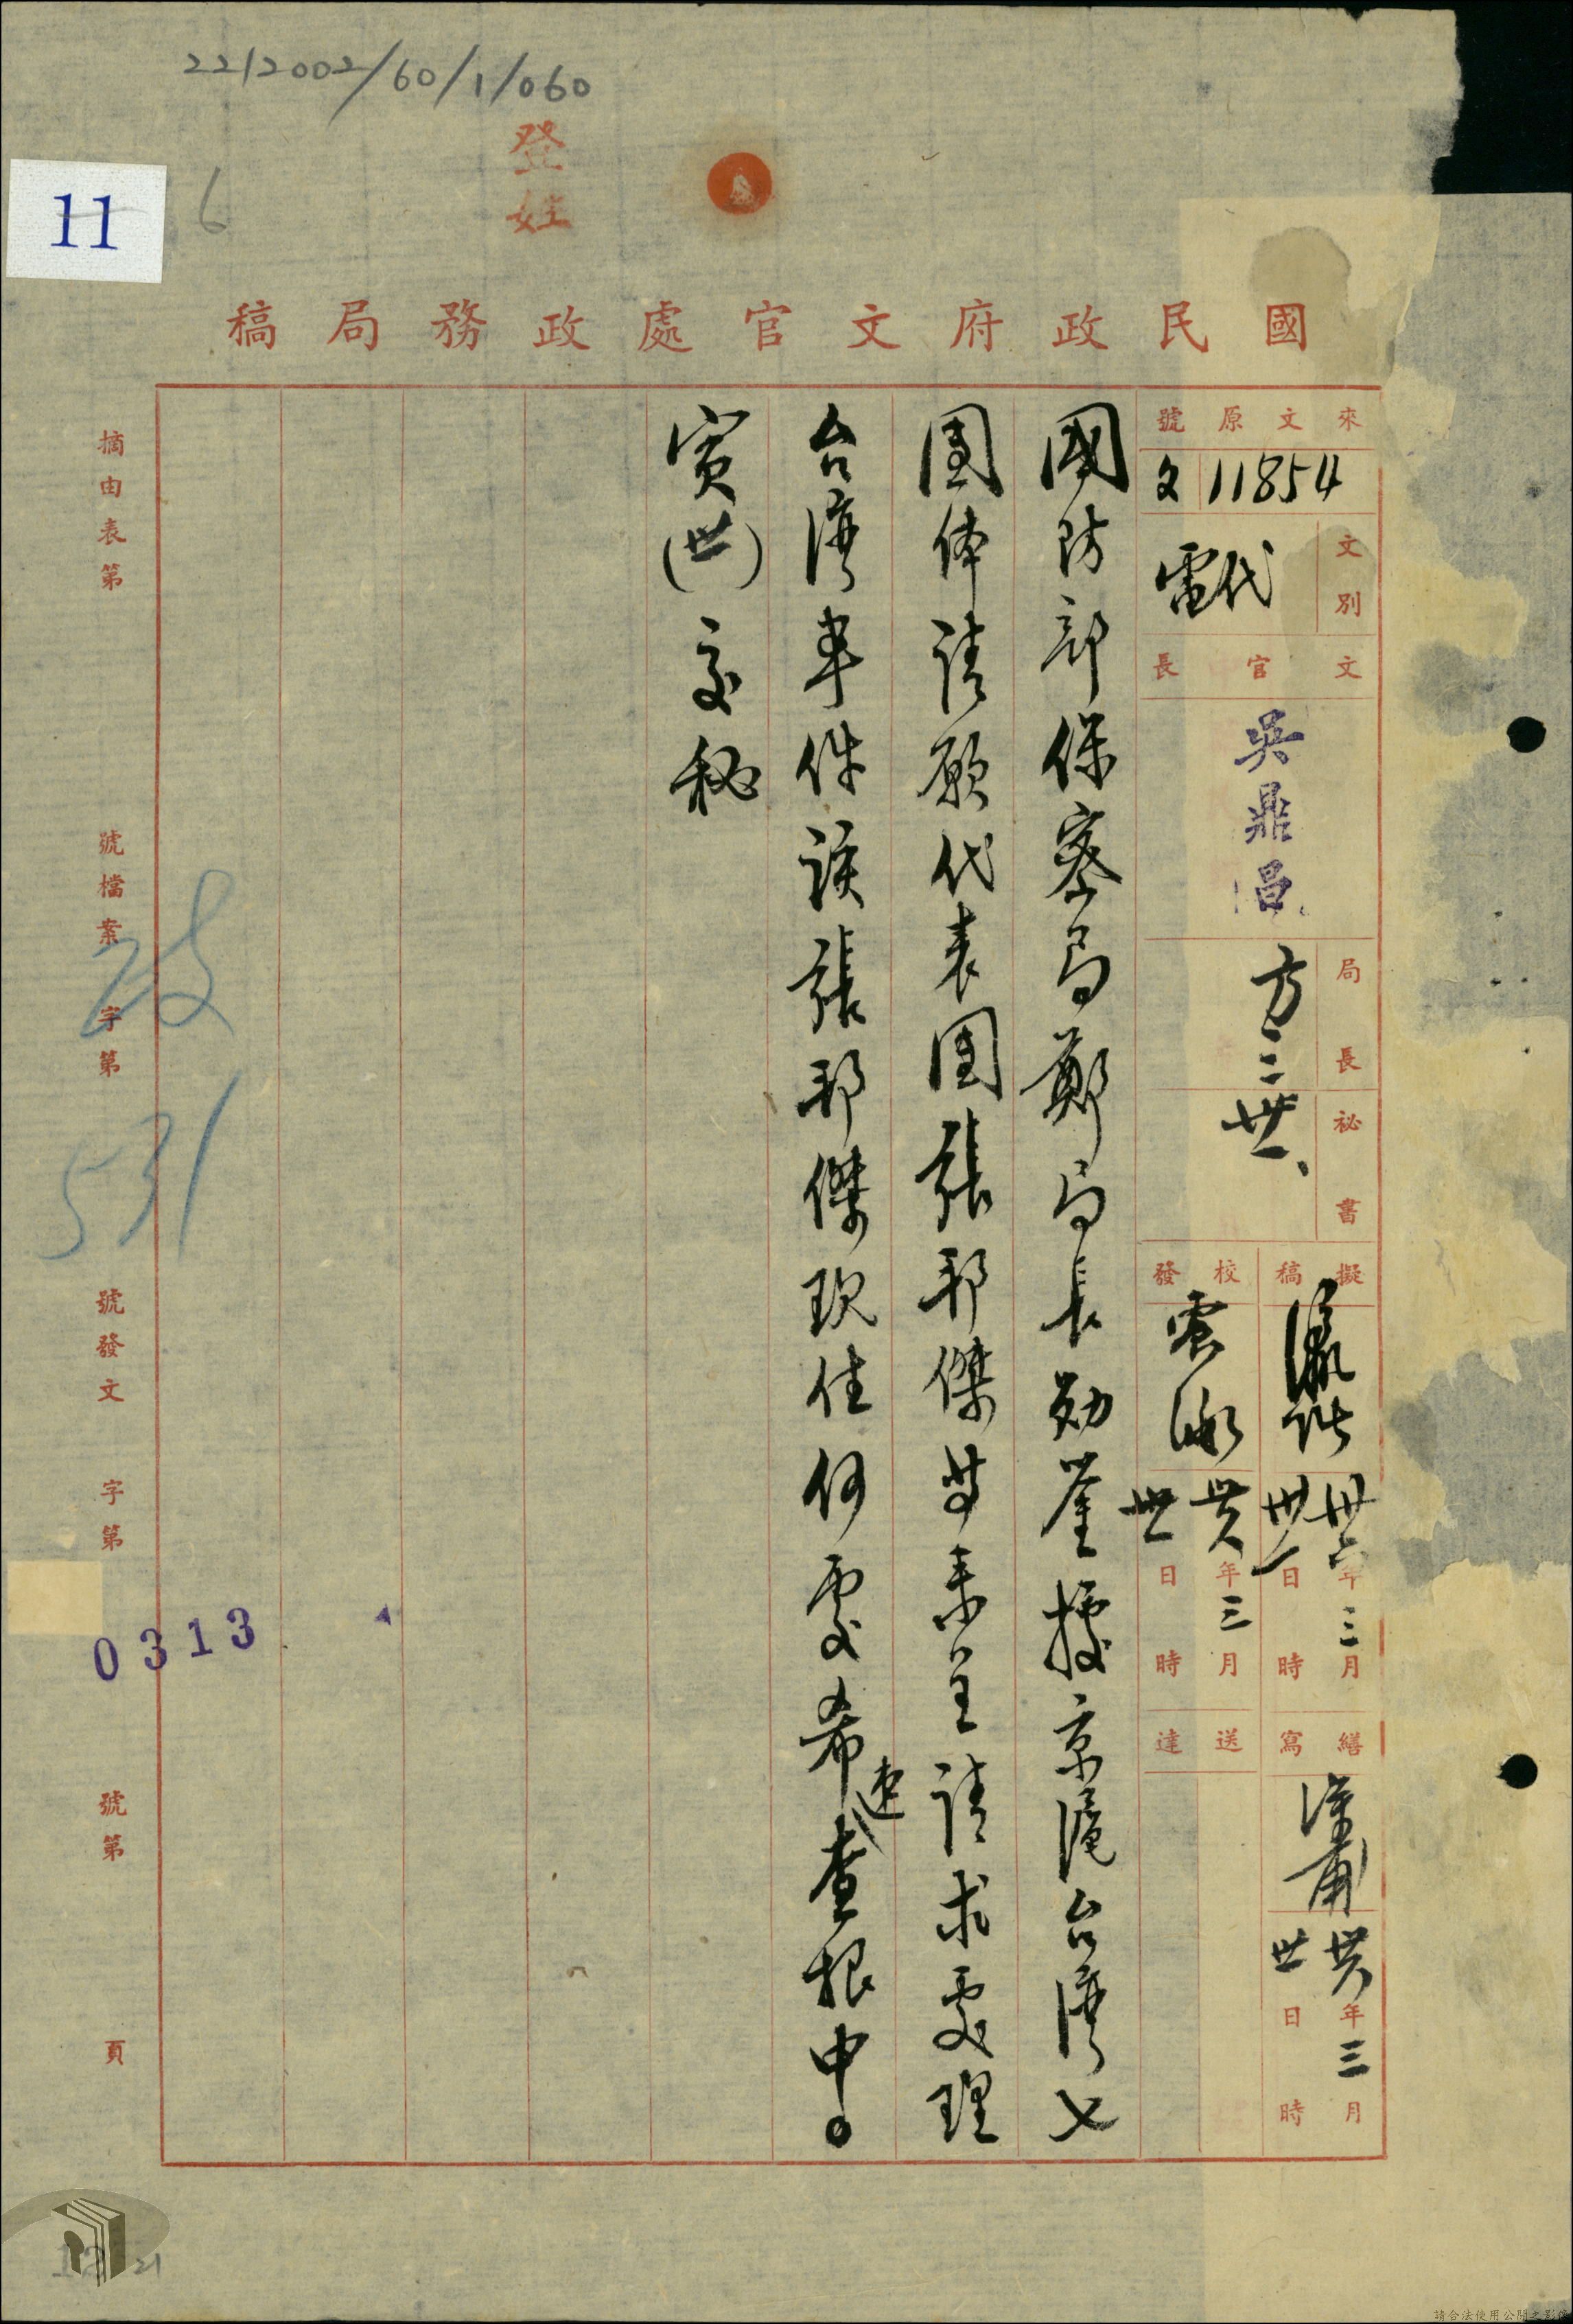 2212002/60/1/060
登
11
6
國民政府文官處政務局稿
來文原號
文 11854
文別
代電
文官長
吳鼎昌
局長
方
三
卅一、
秘書
擬稿
卅六年三月卅一日時
校發
卅六年三月卅一日時
繕寫
卅六年三月卅一日時
送達
國防部保密局鄭局長勛鑒據京滬台灣七
團体請願代表團張邦傑等未呈請求處理
台灣事件該張邦傑現住何處希速查報中。
寅(世)交秘
摘由表第
號檔案
政
字第
531
號發文
字第
0313
號第
頁
21
請合法使用公開之影像